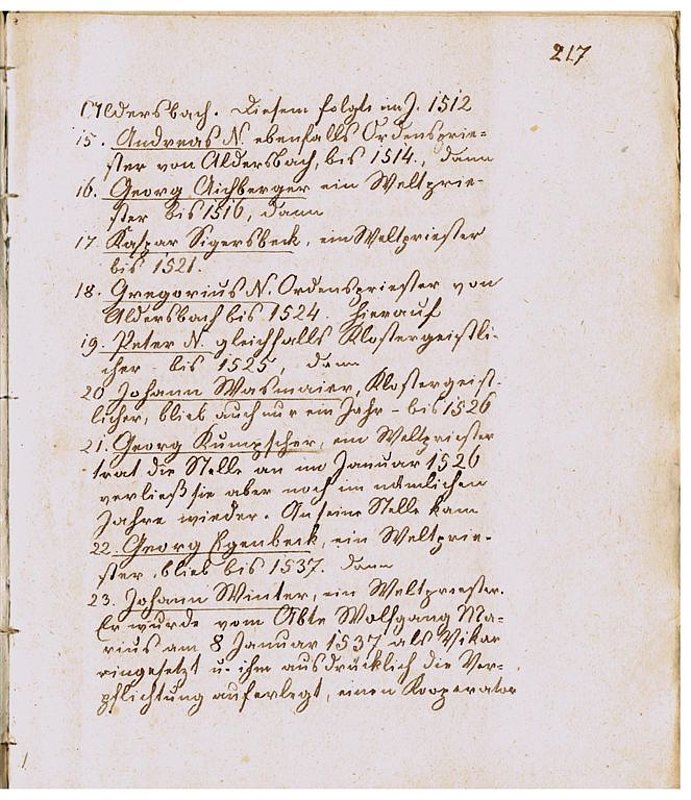 217
Aldersbach. Diesem folgte im J. 1512
15. Andreas N. ebenfalls Ordensprie=
ster von Aldersbach, bis 1514., dann
16. Georg Aichberger ein Weltprie-
ster bis 1516, dann
17. Kaspar Sigersbeck, ein Weltpriester
bis 1521.
18. Gregorius N. Ordenspriester von
Aldersbach bis 1524. Hierauf
19. Peter N. gleichfalls Klostergeistli-
cher - bis 1525, dann
20 Johann Wasmaier, Klostergeist-
licher, blieb auch nur ein Jahr - bis 1526
21. Georg Kumpscher, ein Weltpriester
trat die Stelle an im Januar 1526
verließ sie aber noch im nämlichen
Jahre wieder. An seine Stelle kam
22. Georg Egenbeck, ein Weltprie-
ster, blieb bis 1537. dann
23. Johann Winter, ein Weltpriester.
Er wurde vom Abte Wolfgang Ma=
rius am 8 Januar 1537 als Vikar
eingesetzt u. ihm ausdrücklich die Ver=
pflichtung auferlegt, einen Kooperator